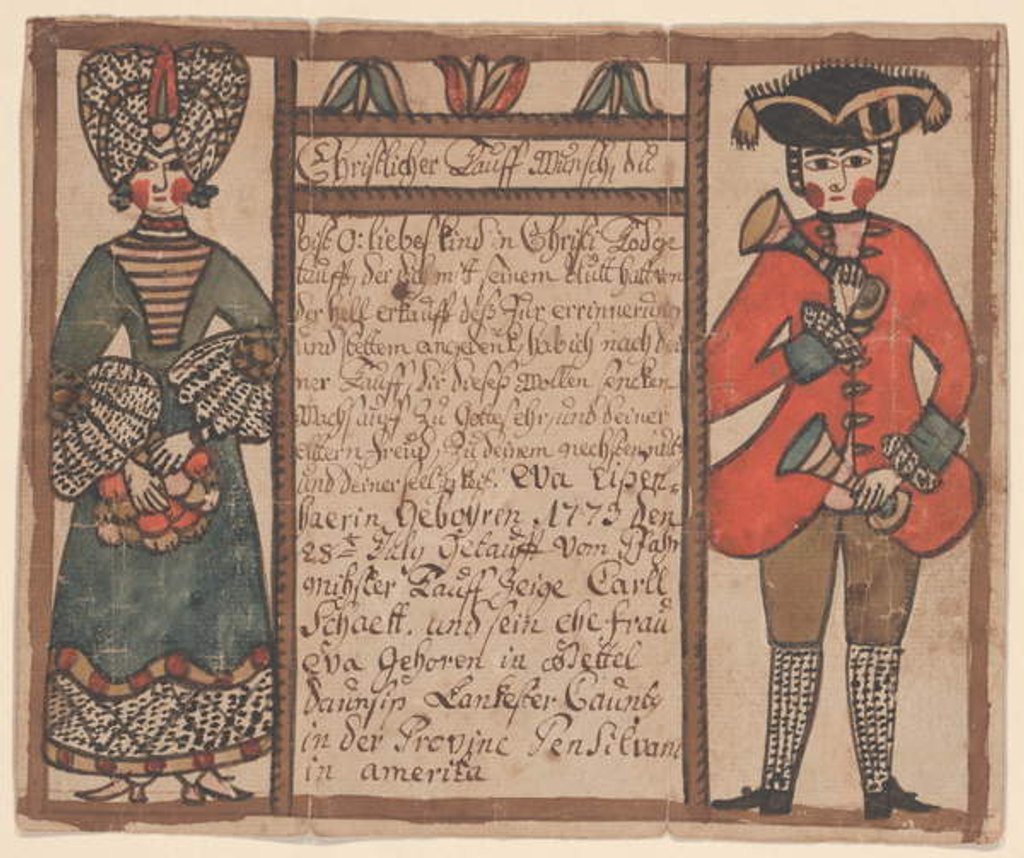 Christlicher Tauff Wunsch, du
bist O: liebes kind in Christi Todge
taufft, der dich mitt seinem blutt hatt von
der hell erkaufft deß Zur errinnerung
und stettem angedenk hab ich nach dei
ner Tauff, dir dieses wollen sencken
Wachs auff Zu Gottes ehr, und deiner
eltern freud, Zu deinem nechsten nutz
und deiner seeligkeit. Eva Lipen-
haerin Geboyren .1773 den
28ten July Getaufft vom Pfahr
Tauff Zeige Carll
Schaeff. und sein ehe frau
Eva Gehoren in Bettel
daunsip Lankester Caunty
in der Provinc Pensilvani
in amerika